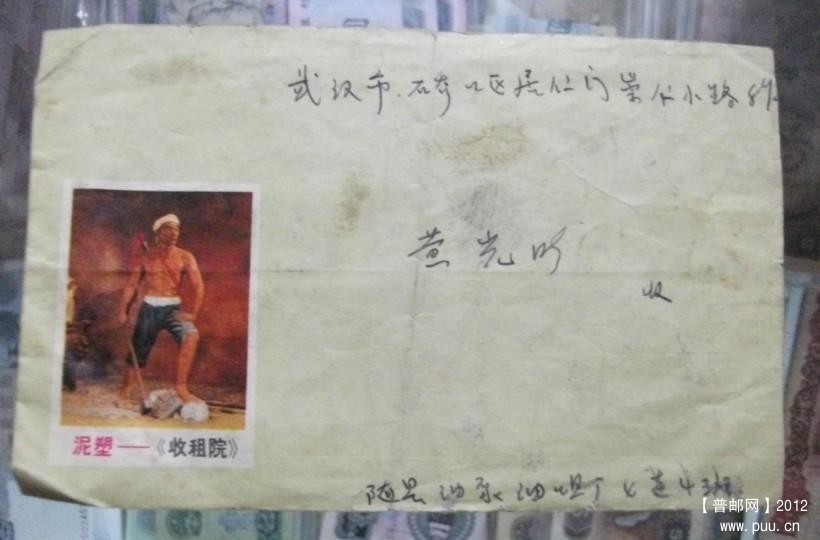 武汉市.硚口区居仁门崇仁小路
黄光明
收
泥塑——《收租院》
随县油泵油咀厂七连4班
【普邮网】2012
www.puu.cn